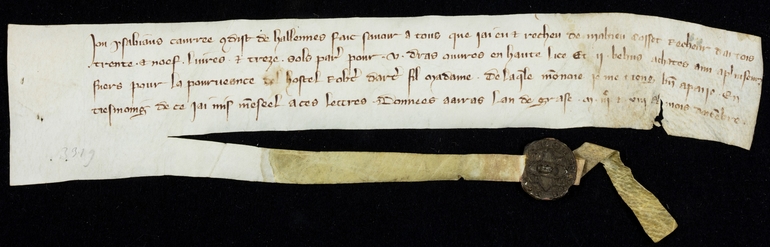 Jou ysabiaus caurree 9dist de hallennes fait savoir a tous que jai eu et recheu de mahieu Cosset Recheur dartois
trente et noef livres et treze sols par pour v dras ouvres en haute lice Et ij achetes a pluseurs
fuers pour la pourveance del hostel Robt dart fil Madame de laqle monnoie me tieng a paijs En
tiesmoing de ce jai mis mon seel a ces lettres Donnees a arras lan de grase et mois
3319